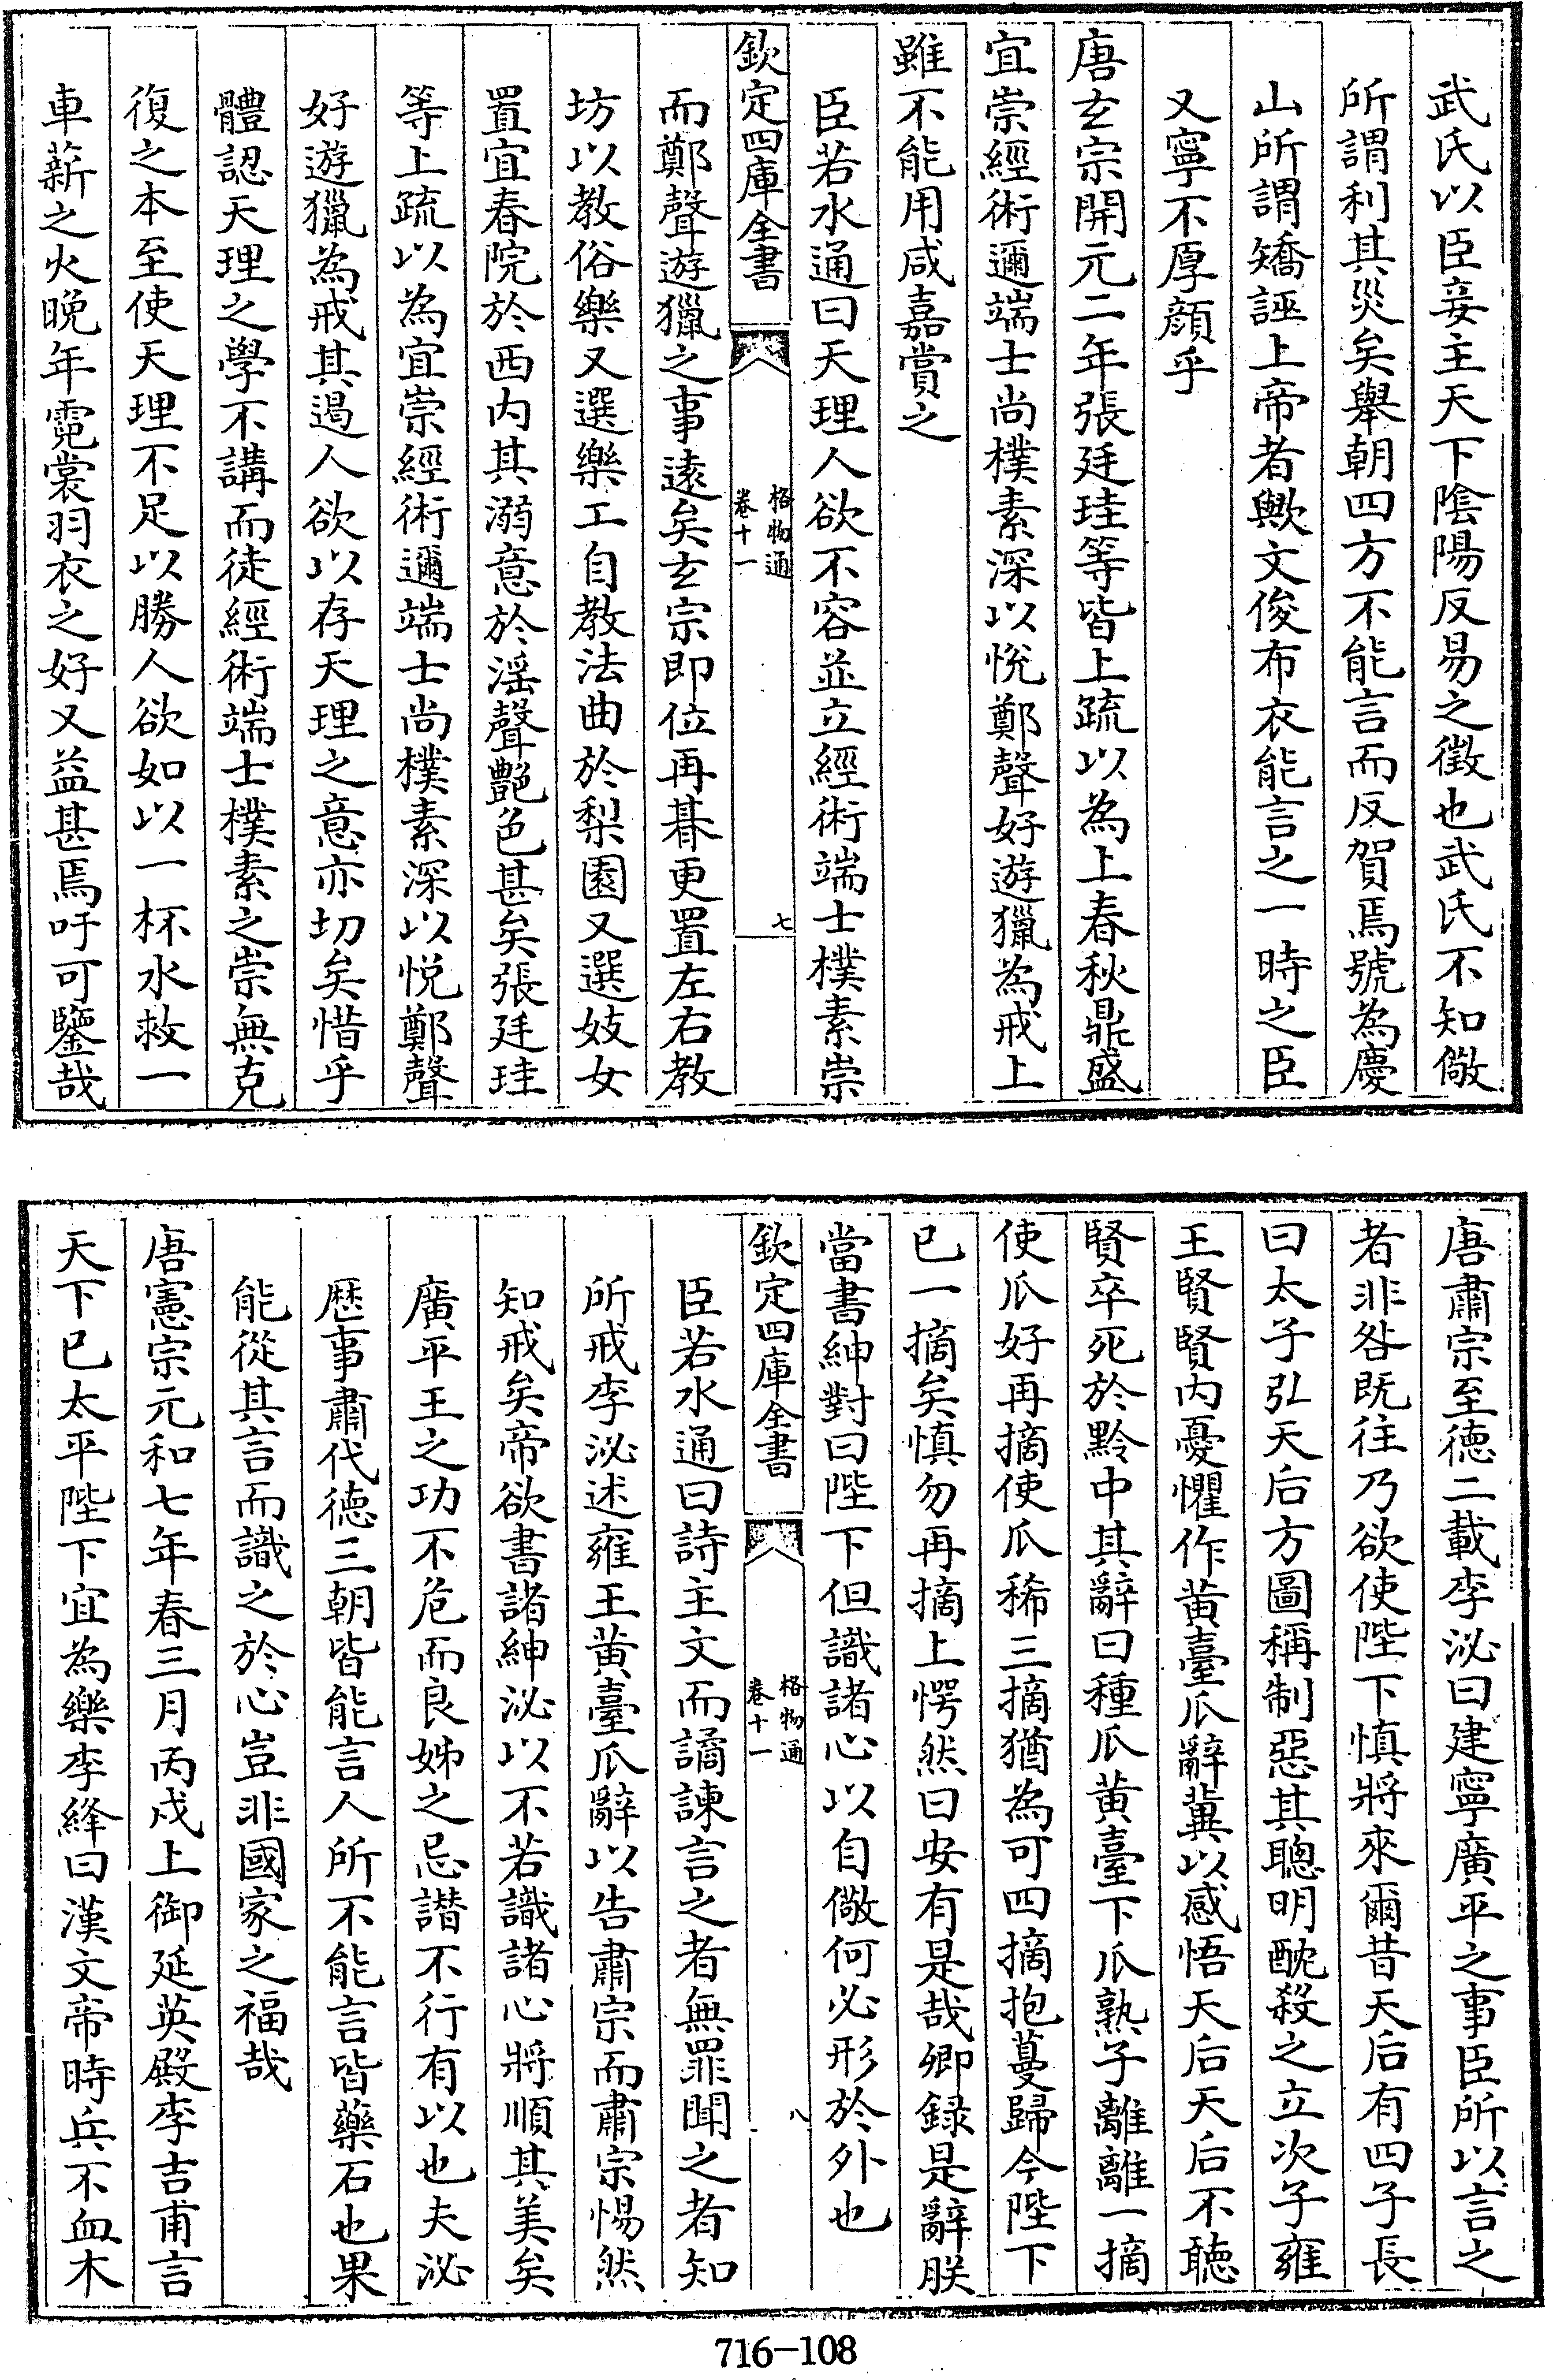 武氏以臣妾主天下陰陽反易之徵也武氏不知儆
所謂利其災矣舉朝四方不能言而反賀焉號為慶
山所謂矯誣上帝者歟文俊布衣能言之一時之臣
又寧不厚顔乎
唐玄宗開元二年張廷珪等皆上疏以為上春秋鼎盛
宜崇經術邇端士尚樸素深以悅鄭聲好遊獵為戒上
雖不能用咸嘉賞之
臣若水通曰天理人欲不容並立經術端士樸素崇
欽定四庫全書
格物通
卷十一
七
而鄭聲遊獵之事遠矣玄宗即位再朞更置左右教
坊以教俗樂又選樂工自教法曲於梨園又選妓女
置宜春院於西内其溺意於淫聲艷色甚矣張廷珪
等上疏以為宜崇經術邇端士尚樸素深以悅鄭聲
好遊獵為戒其遏人欲以存天理之意亦切矣惜乎
體認天理之學不講而徒經術端士樸素之崇無克
復之本至使天理不足以勝人欲如以一杯水救一
車薪之火晚年霓裳羽衣之好又益甚焉吁可鑒哉
唐肅宗至德二載李泌曰建寧廣平之事臣所以言之
者非咎既往乃欲使陛下慎將來爾昔天后有四子長
曰太子弘天后方圖稱制惡其聰明酖殺之立次子雍
王賢賢内憂懼作黄臺瓜辭冀以感悟天后天后不聽
賢卒死於黔中其辭曰種瓜黄臺下瓜熟子離離一摘
使瓜好再摘使瓜稀三摘猶為可四摘抱蔓歸今陛下
已一摘矣慎勿再摘上愕然曰安有是哉卿録是辭朕
當書紳對曰陛下但識諸心以自儆何必形於外也
欽定四庫全書
格物通
卷十一
八
臣若水通曰詩主文而譎諫言之者無罪聞之者知
所戒李泌述雍王黄臺瓜辭以告肅宗而肅宗惕然
知戒矣帝欲書諸紳泌以不若識諸心將順其美矣
廣平王之功不危而良娣之忌譖不行有以也夫泌
歴事肅代德三朝皆能言人所不能言皆藥石也果
能從其言而識之於心豈非國家之福哉
唐憲宗元和七年春三月丙戌上御延英殿李吉甫言
天下已太平陛下宜為樂李絳曰漢文帝時兵不血木
716-108